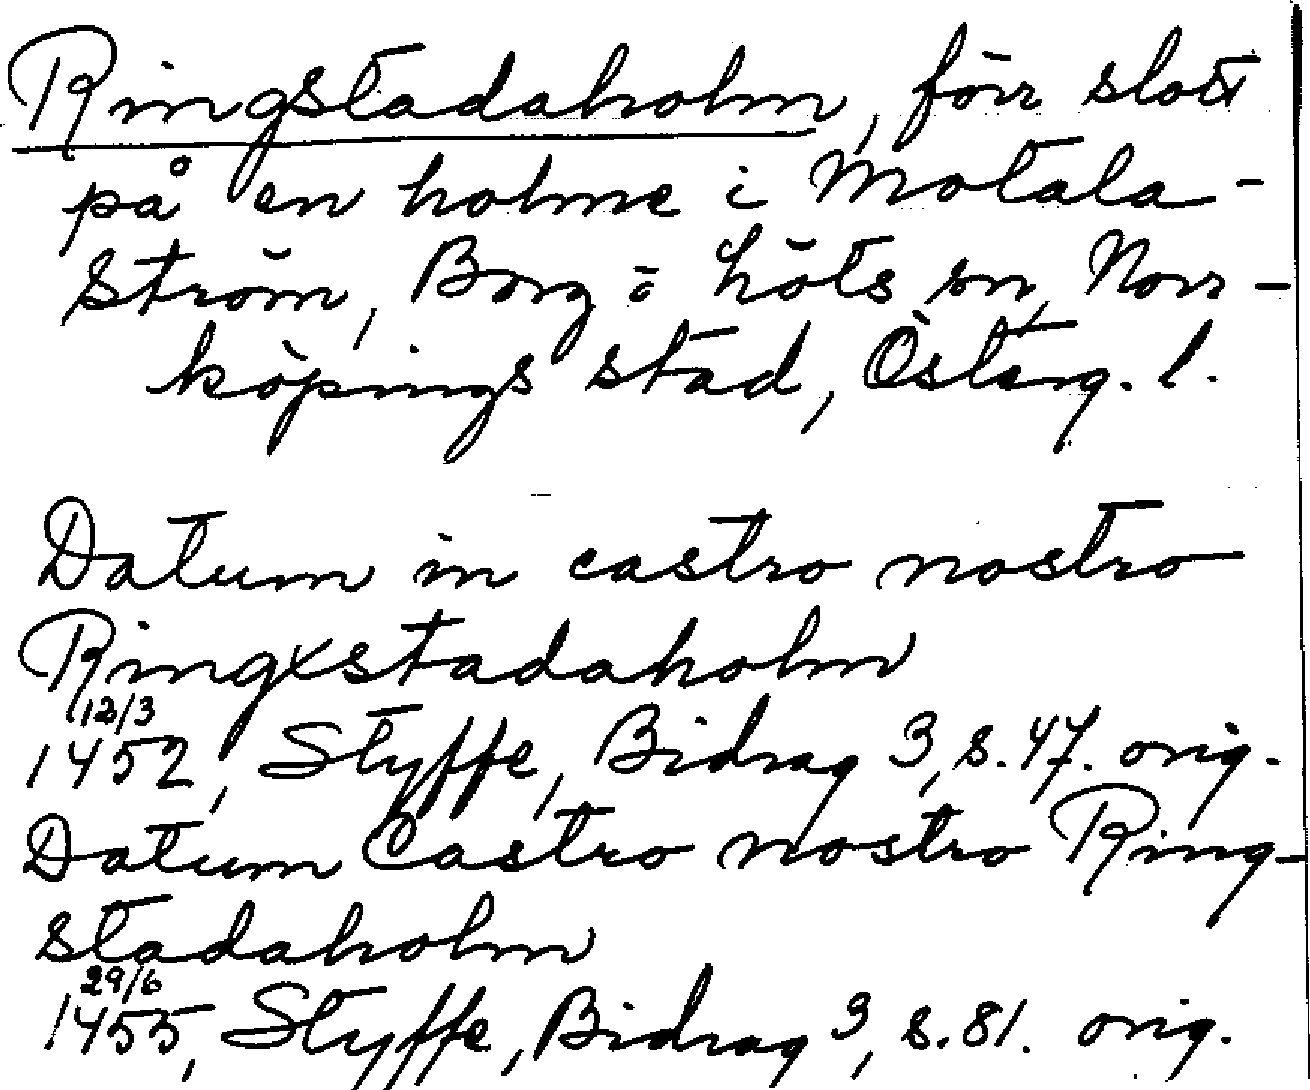 Ringstadaholm, förr slott
på en holme i Motala-
Ström, Borg o. Löts sn, Norr-
köpings stad, Österg. l.
Datum in castro nostro
Ringxstadaholm
12/3
1452, Styffe, Bidrag 3, s. 47. orig.
Datum Castro nostro Ring-
stadaholm
29/6
1455, Styffe, Bidrag 3, s. 81. orig.